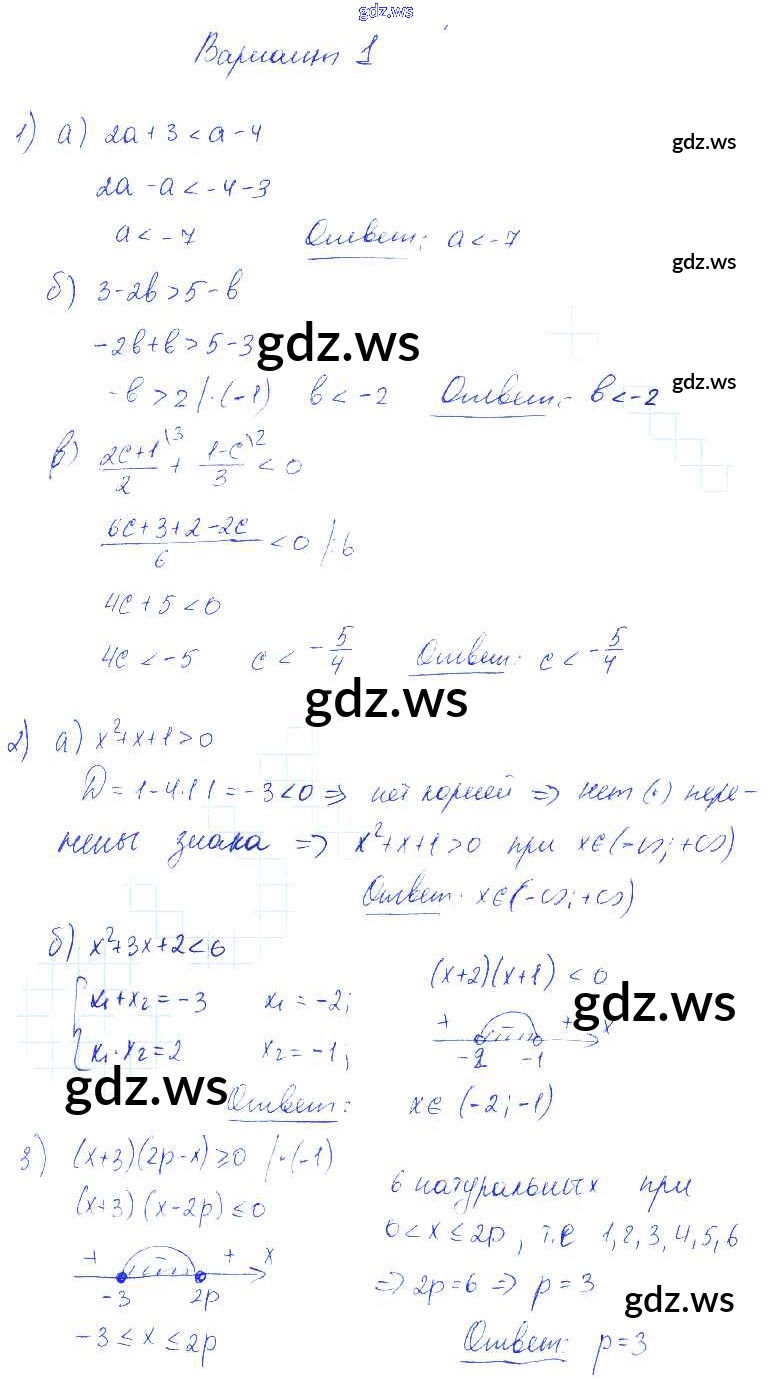 gdz.ws
Вариант 1
1) а) 2a + 3 < a - 4
gdz.ws
2a - a < -4 - 3
a < -7 Ответ: a < -7
gdz.ws
б) 3 - 2b > 5 - b
-2b + b > 5 - 3
gdz.ws
-b > 2 | · (-1) b < -2 Ответ: b < -2
gdz.ws
в) (2c+1)/2 \3 + (1-c)/3 \2 < 0
(6c + 3 + 2 - 2c)/6 < 0 | · 6
4c + 5 < 0
4c < -5 c < -5/4 Ответ: c < -5/4
gdz.ws
2) а) x² + x + 1 > 0
D = 1 - 4·1·1 = -3 < 0 => нет корней => нет (·) пере-
мены знака => x² + x + 1 > 0 при x ∈ (-∞; +∞)
Ответ: x ∈ (-∞; +∞)
б) x² + 3x + 2 < 6
{ x₁ + x₂ = -3 x₁ = -2;
x₁ · x₂ = 2 x₂ = -1;
(x+2)(x+1) < 0
gdz.ws
+ + x
-2 -1
gdz.ws
Ответ: x ∈ (-2; -1)
3) (x+3)(2p-x) ≥ 0 | · (-1)
(x+3)(x-2p) ≤ 0
+ - + x
-3 2p
-3 ≤ x ≤ 2p
6 натуральных при
0 < x ≤ 2p, т.е 1, 2, 3, 4, 5, 6
=> 2p = 6 => p = 3
gdz.ws
Ответ: p = 3